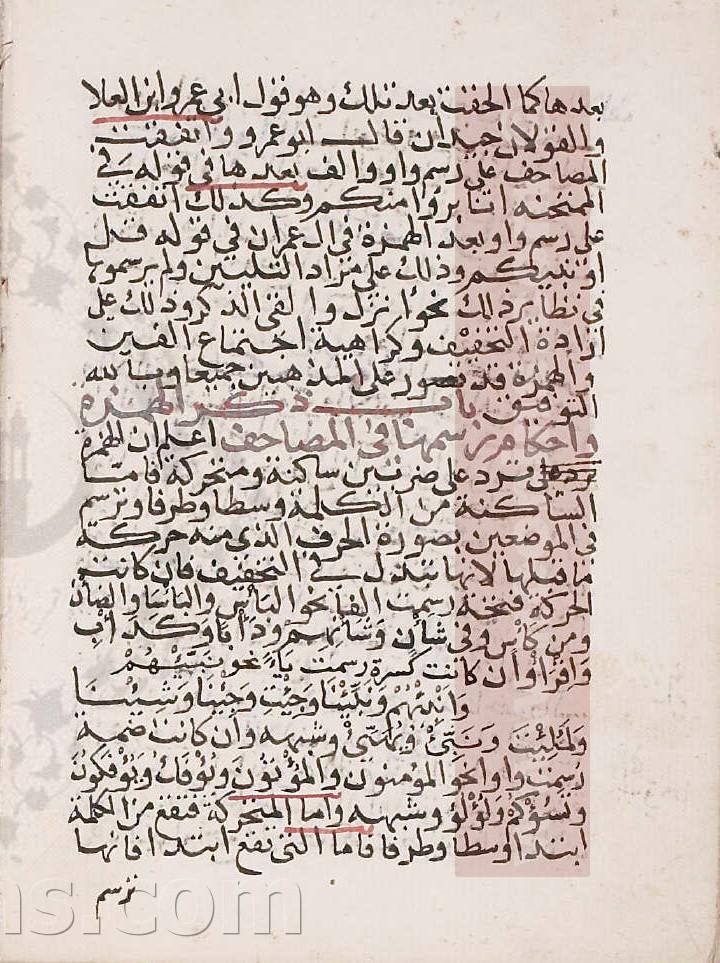 بعدها كما الحقت بعد تلك وهو قول ابي عمرو ابن العلا
والقولان جيدان قال ابو عمرو واتفقت
المصاحف على رسم واو والف بعدها في قوله في
الممتحنه انا برؤا منكم وكذلك اتفقت
على رسم واو بعد الهمزة في ال عمران في قوله قل
اونبيكم وذلك على مراد التليين ولم يرسموها
في نظاير ذلك نحو أنزل والقى الذكر وذلك على
ارادة التخفيف وكراهية اجتماع الفين
والهمزة قد تصور على المذهبين جميعا وبالله
التوفيق باب ذكر الهمزة
واحكام رسمها في المصاحف اعلم ان الهمزة
ترد على ضربين ساكنة ومتحركة فاما
الساكنة من الكلمة وسطا وطرفا وترسم
في الموضعين بصورة الحرف الذي منه حركة
ما قبلها لانها تبدل في التخفيف فان كانت
الحركة فتحة رسمت الفا نحو البأس والباسا والضان
ومن كأس وفي شأن وشأنهم ودأبا وكدأب
واقرأ وان كانت كسرة رسمت ياء نحو نبيهم
وانبئهم ونبئنا وجئت وجئنا وشئنا
ولملئت ونبئ ويهيئ وشبهه وان كانت ضمه
رسمت واوا نحو المومنون والمؤتون ويؤفك ويؤفكون
وتسؤكم ولؤلؤ وشبهه واما المتحركة فتقع من الكلمة
ابتدا ووسطا وطرفا فاما التى تقع ابتدا فانها
ترسم
ns.com